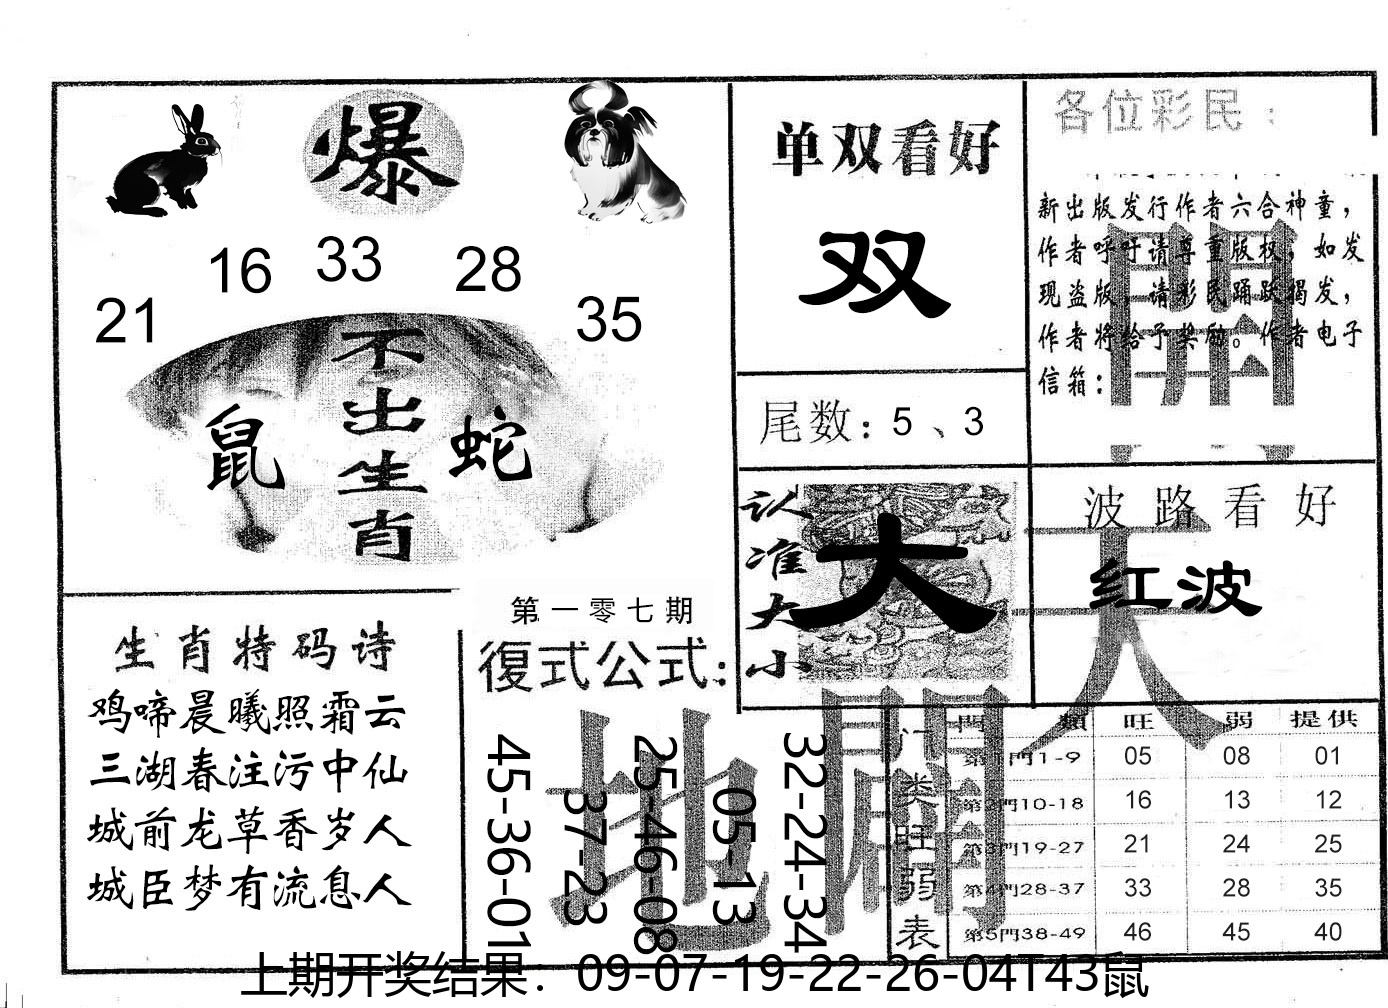 爆
16 33 28
21 35
不出生肖
鼠 蛇
单双看好
双
尾数：5、3
各位彩民：
新出版发行作者六合神童，
作者呼吁请尊重版权，如发
现盗版，请彩民踊跃揭发，
作者将给予奖励。作者电子
信箱：
認准大小
大
波路看好
红波
天
開
地
闢
生肖特码诗
鸡啼晨曦照霜云
三湖春注污中仙
城前龙草香岁人
城臣梦有流息人
第一零七期
復式公式：
45-36-01
37-23
25-46-08
05-13
32-24-34
门类旺弱表
門類 旺 弱 提供
第1門1-9 05 08 01
第2門10-18 16 13 12
第3門19-27 21 24 25
第4門28-37 33 28 35
第5門38-49 46 45 40
上期开奖结果：09-07-19-22-26-04T43鼠